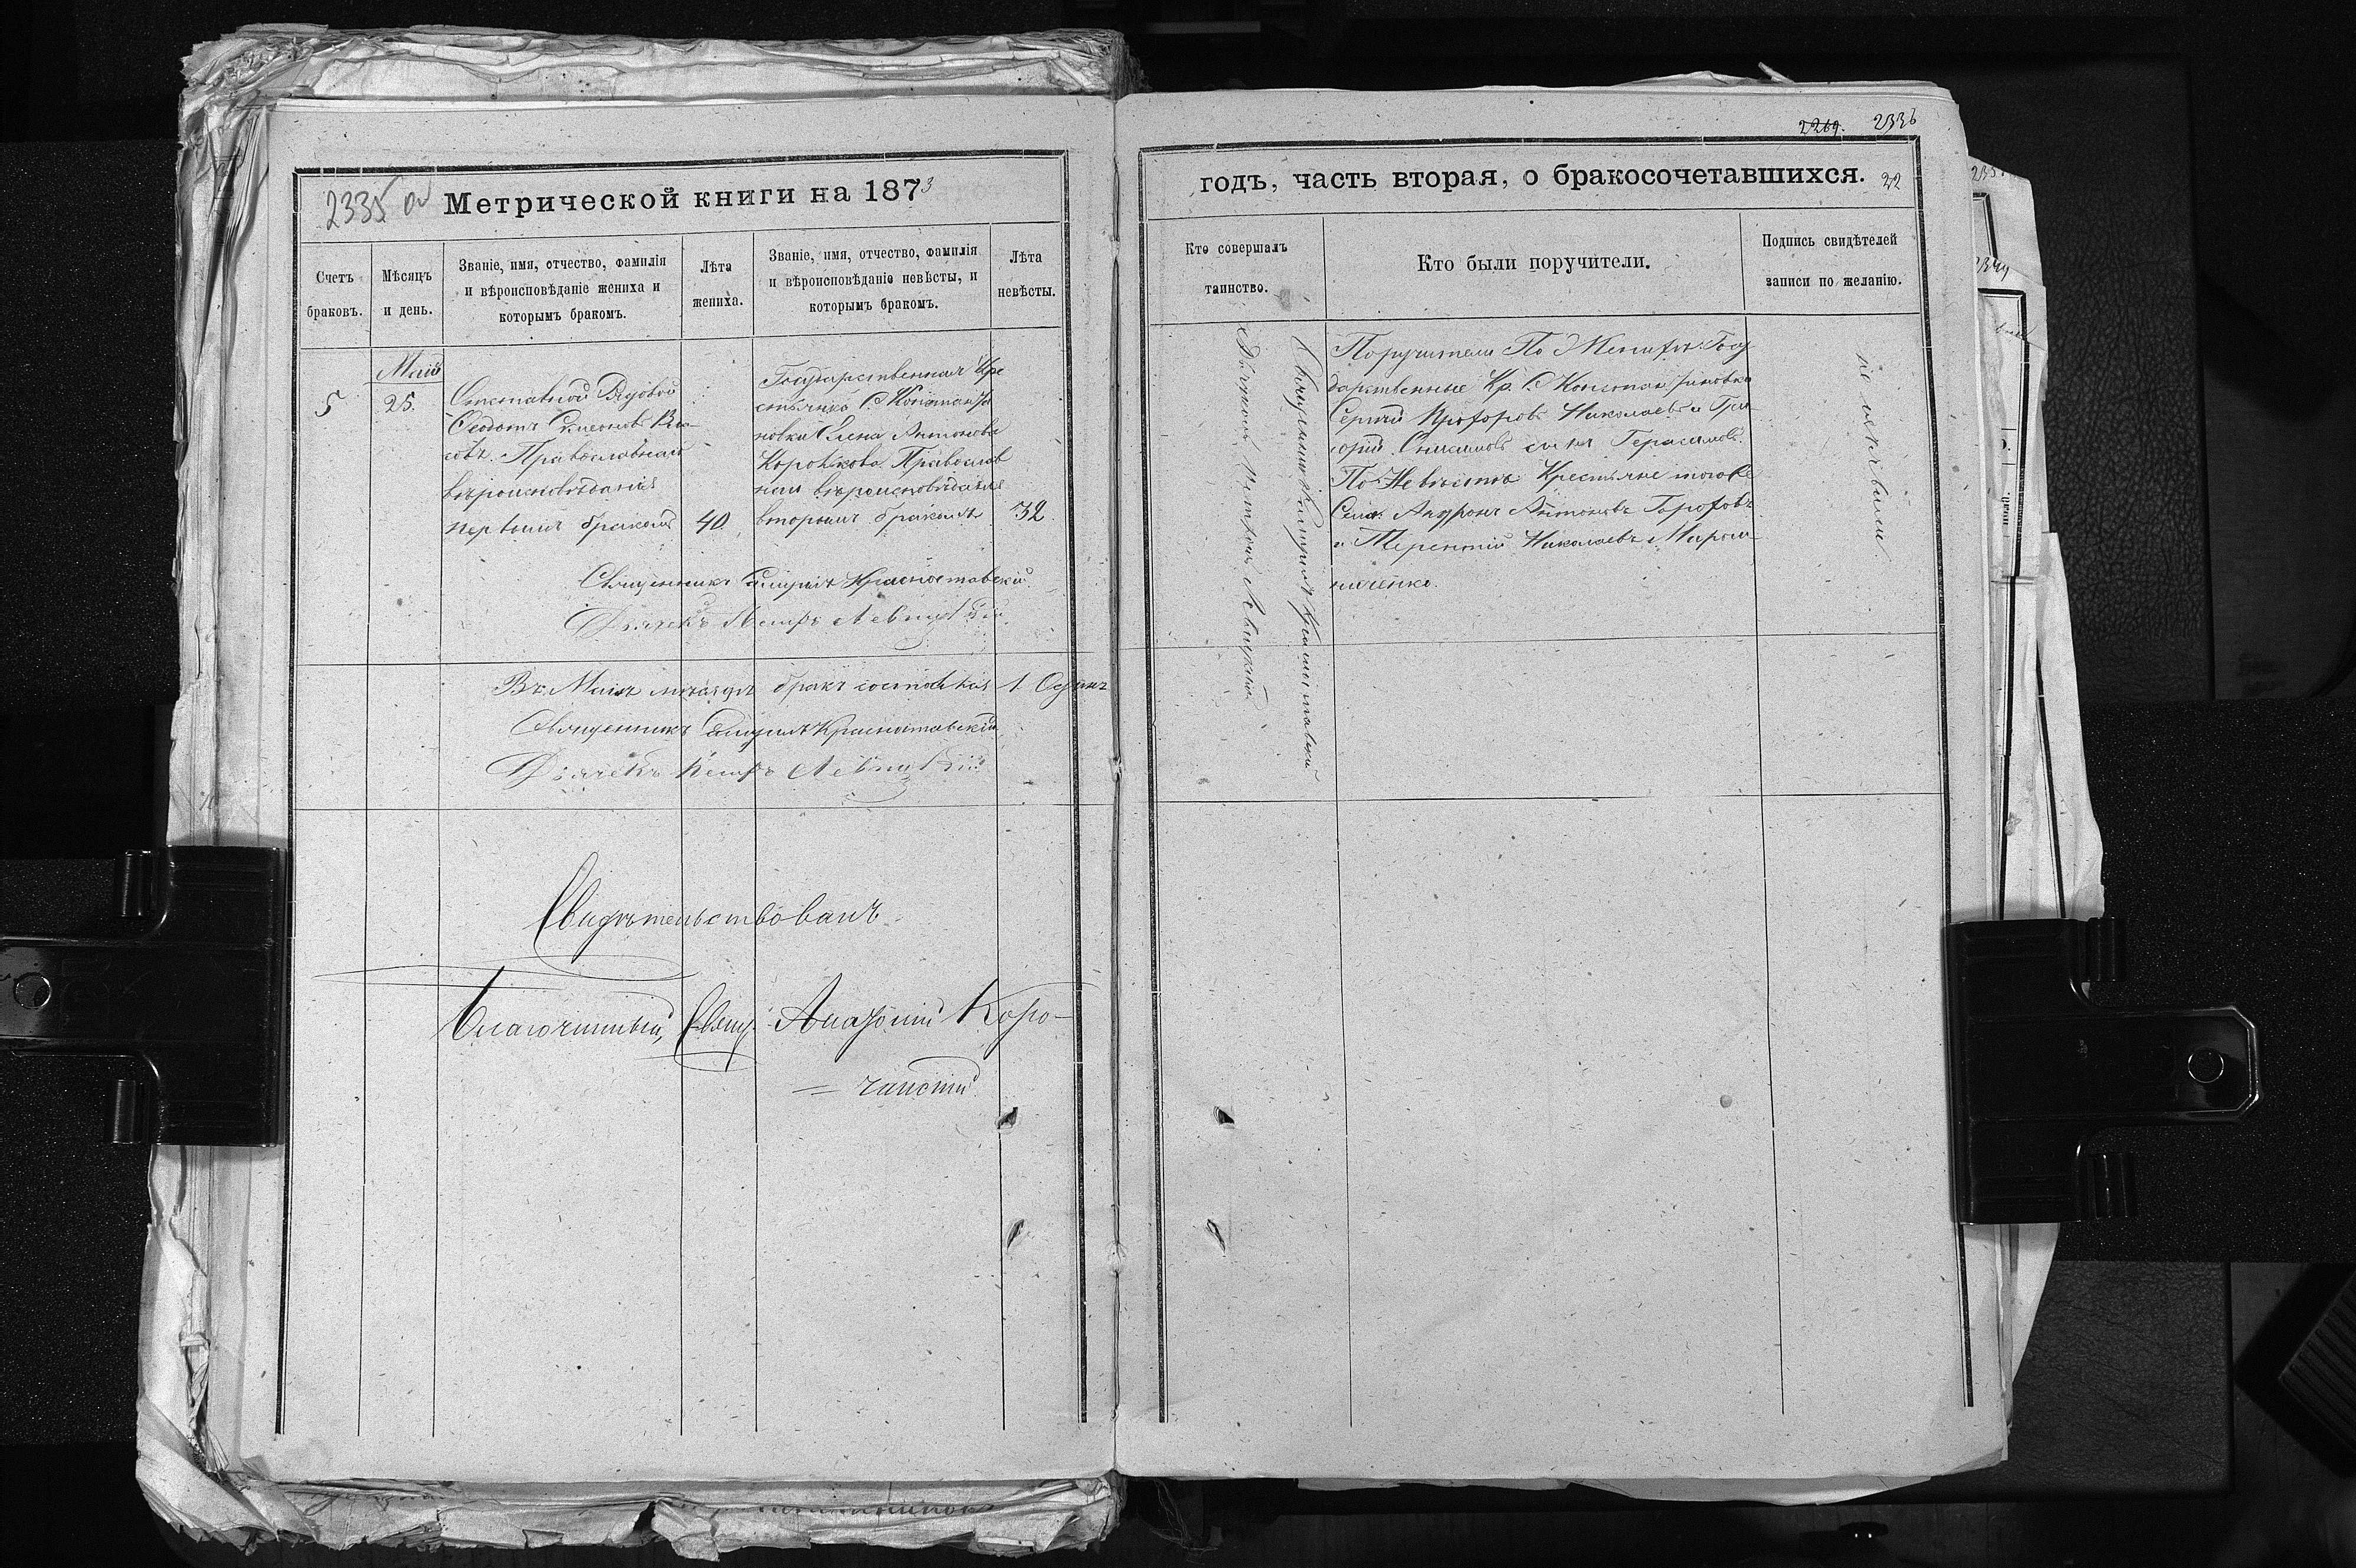 2335 об
Метрической книги на 1873
Счетъ браковъ.
Мѣсяцъ и день.
Званіе, имя, отчество, фамилія
и вѣроисповѣданіе жениха и
которымъ бракомъ.
Лѣта
жениха.
Званіе, имя, отчество, фамилія
и вѣроисповѣданіе невѣсты, и
которымъ бракомъ.
Лѣта
невѣсты.
5
Маій
25.
Отставной Рядовой
Ѳеодотъ Симеоновъ
Православнаго
вѣроисповѣданія
первымъ бракомъ
40.
Государственная Кре
стьянка С. Константи
новки Елена Антонова
Коробкова Православ
наго вѣроисповѣданія
вторымъ бракомъ
32.
Священникъ Самуилъ Красноставскій.
Дьячекъ Петръ Левицкій.
Въ Маіѣ мѣсяцѣ бракъ состоялся 1. Одинъ
Священникъ Самуилъ Красноставскій
Дьячекъ Петръ Левицкій
Свидѣтельствовалъ
Благочинный, Свящ.
2269. 2336
годъ, часть вторая, о бракосочетавшихся. 22
Кто совершалъ
таинство.
Кто были поручители.
Подпись свидѣтелей
записи по желанію.
Священникъ Самуилъ Красноставскій
Дьячкомъ Петромъ Левицкимъ
Поручители По Женихѣ: Госу
дарственные Кр. С. Константиновки
Сергій Прохоровъ Николаевъ и Гри
горій Герасимовъ.
По Невѣстѣ Крестьяне тогоже
Села. Андронъ Антоновъ Гороховъ
и Терентій Николаевъ Мирош
ниченко.